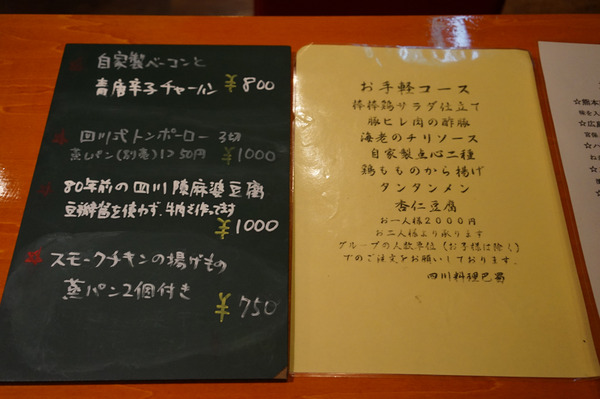 自家製ベーコンと
青唐辛子チャーハン ¥800
四川式トンポーロー 3切
蒸しパン(別売)1コ50円 ¥1000
80年前の四川陳麻婆豆腐
豆瓣醤を使わず、牛肉を作ってます
¥1000
スモークチキンの揚げもの
蒸パン2個付き ¥750
お手軽コース
棒棒鶏サラダ仕立て
豚ヒレ肉の酢豚
海老のチリソース
自家製点心二種
鶏もものから揚げ
タンタンメン
杏仁豆腐
お一人様2000円
お二人様より承ります
グループの人数単位(お子様は除く)
でのご注文をお願いしております。
四川料理巴蜀
☆熊本
☆広島